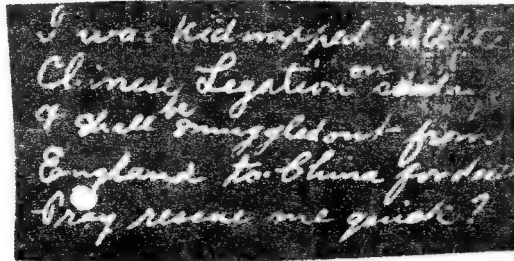 I was Kidnapped into the
Chinese Legation on
I shall be smuggled out from
England to China for death
Pray rescue me quick?